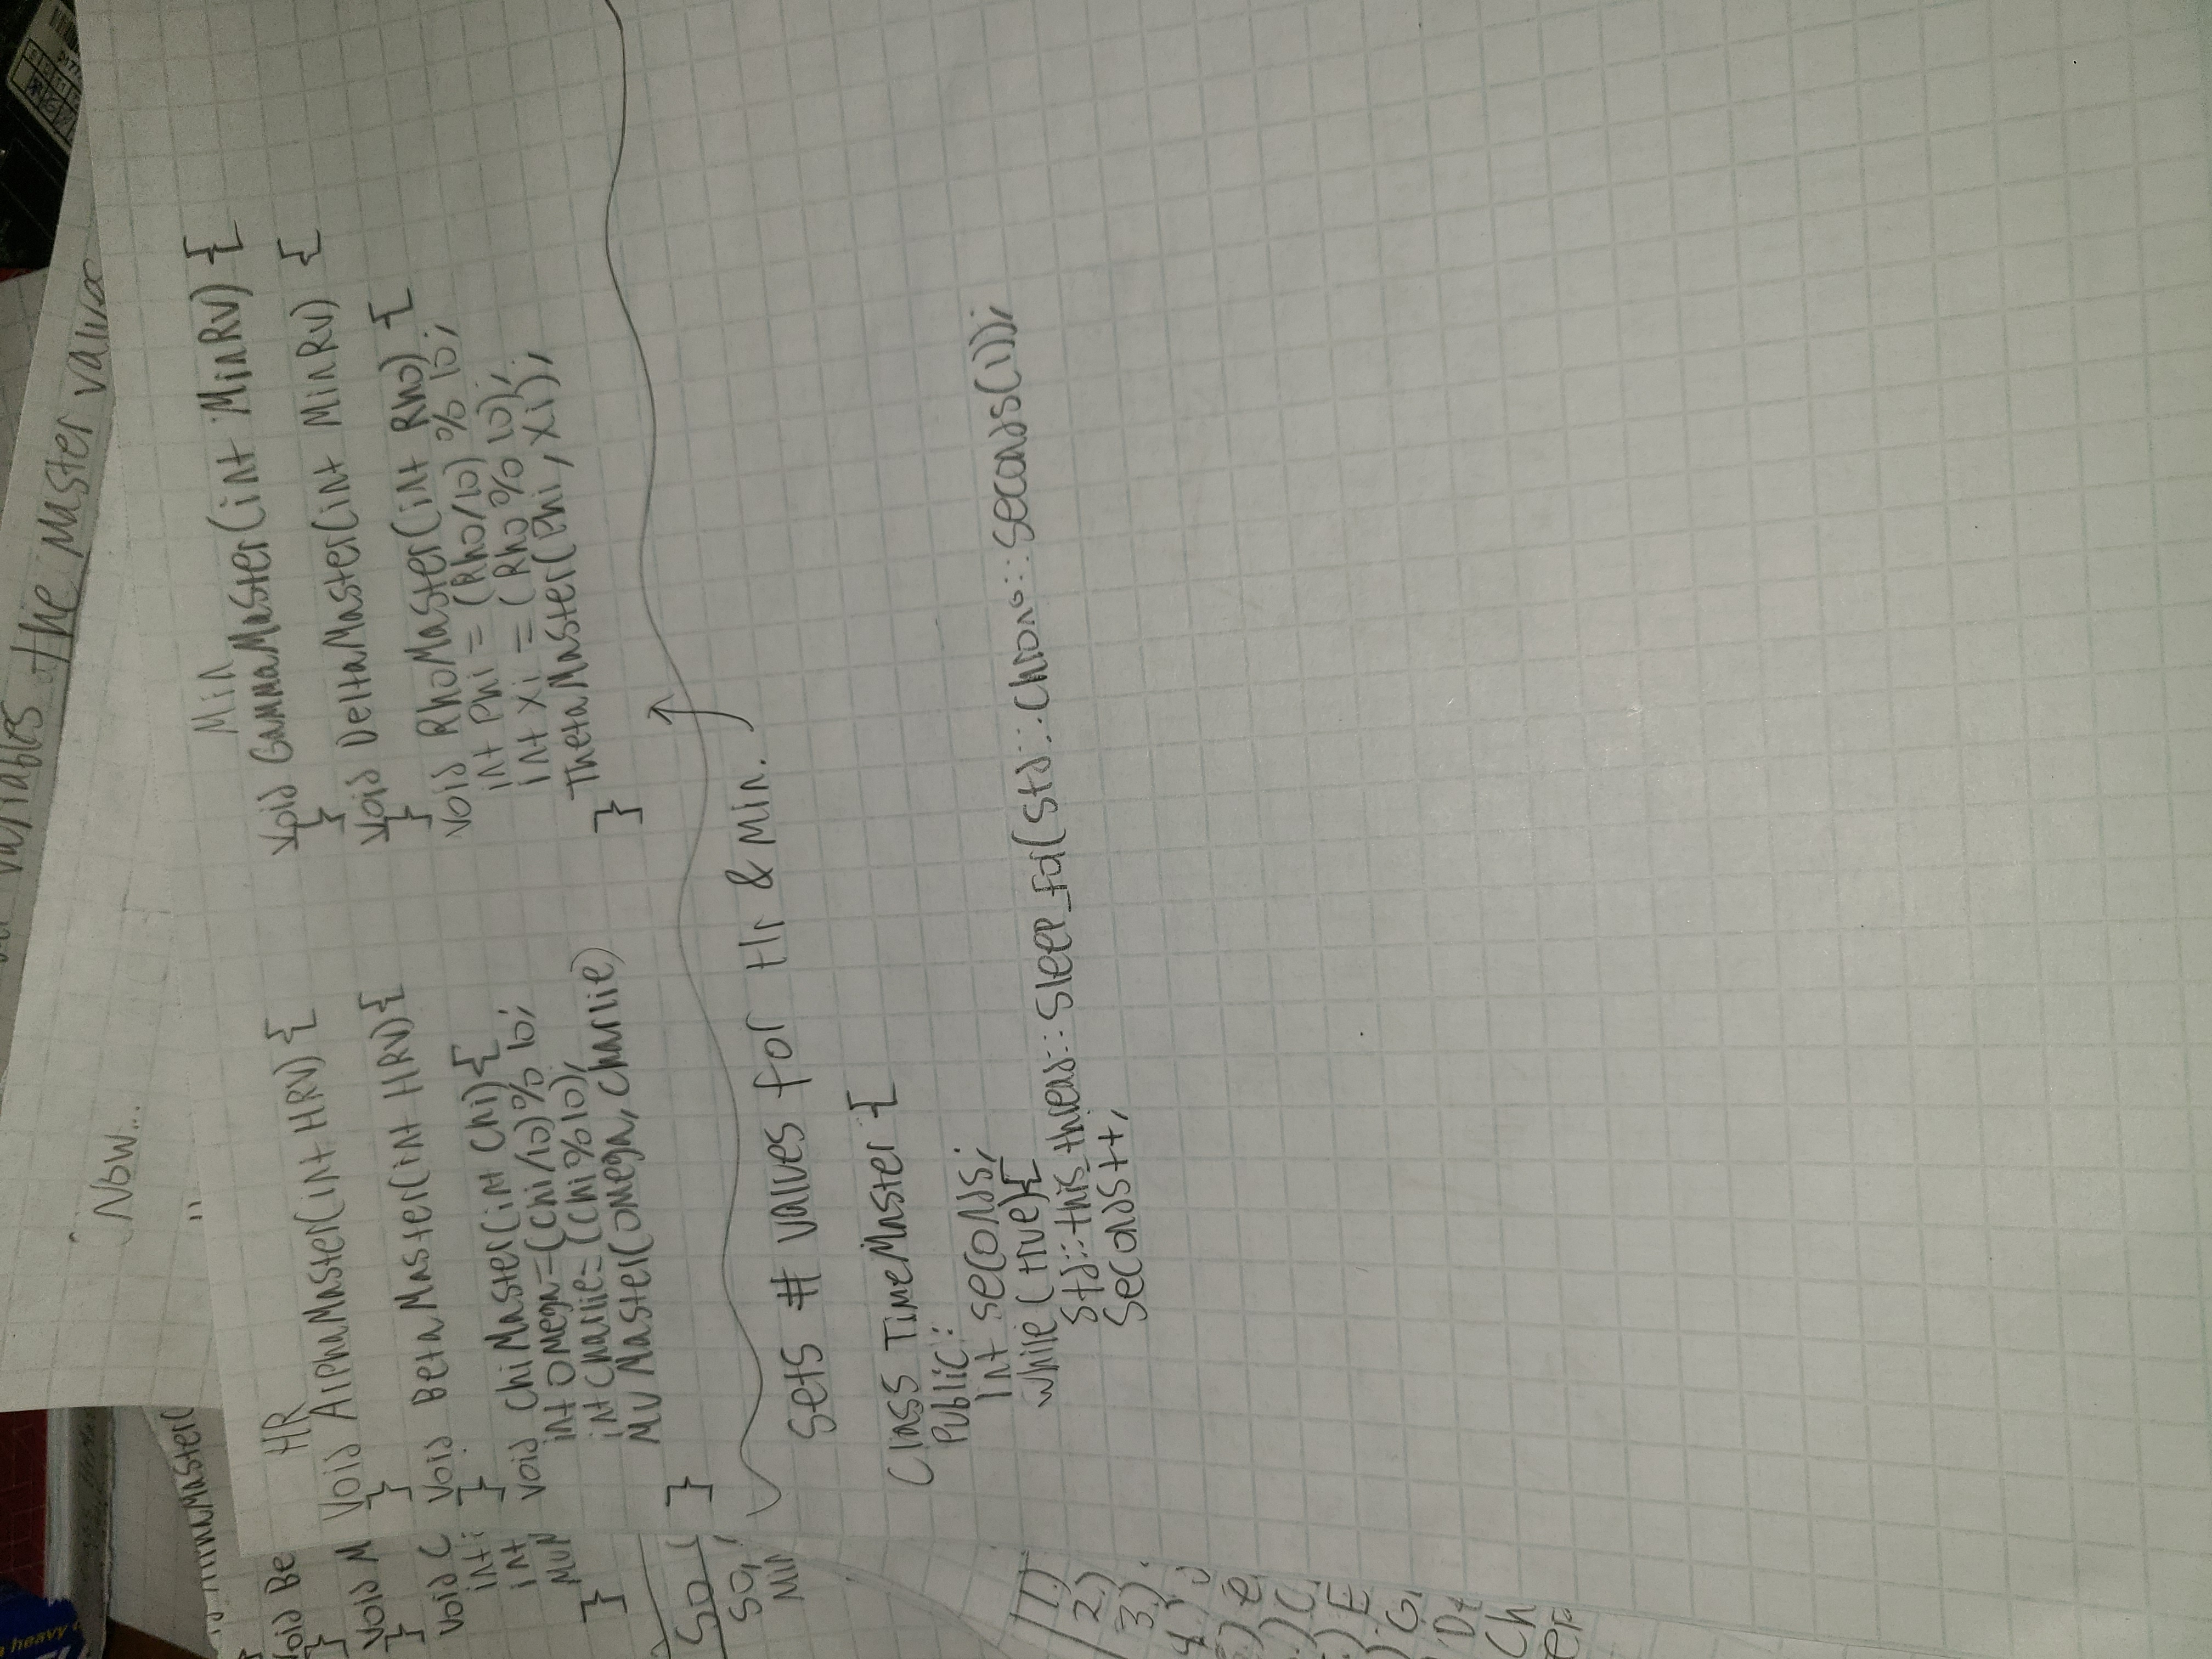 variables the Master values
Now...
AlphaMaster(
Void Be
}
Void M
}
Void C
int i
int
MuM
}
So
So,
Min
1.)
2.)
3.)
HR
Void AlphaMaster(int HRV) {
}
Void BetaMaster(int HRV) {
}
Void ChiMaster(int Chi) {
int Omega = (Chi/10) % 10;
int Charlie = (Chi % 10);
MU Master(Omega, Charlie)
}
Min
Void GammaMaster(int MinRV) {
}
Void DeltaMaster(int MinRV) {
}
Void RhoMaster(int Rho) {
int Phi = (Rho/10) % 10;
int Xi = (Rho % 10);
ThetaMaster(Phi, Xi);
}
Sets # values for Hr & Min.
Class TimeMaster {
Public:
Int seconds;
while (true) {
Std::this_thread::Sleep_for(Std::Chrono::Seconds(1));
Seconds++;